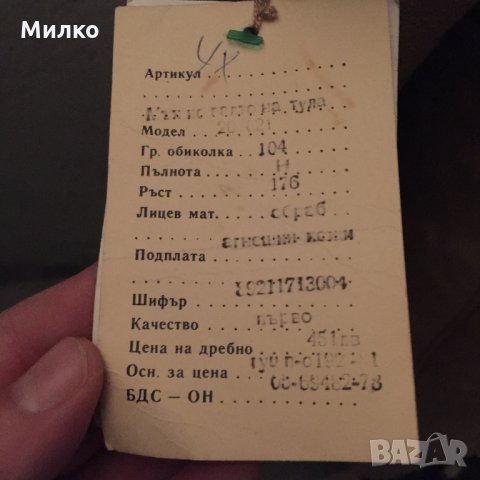 Милко
Артикул
на тула
Модел
Гр. обиколка 104
Пълнота Н
Ръст 176
Лицев мат. обраб
агнешки кожи
Подплата
19211713004
Шифър
Качество първо
Цена на дребно 451лв
Осн. за цена
БДС – ОН
BAZAR